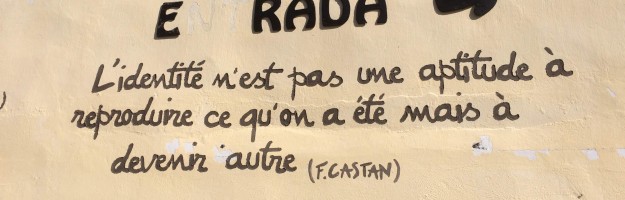 E RADA
L'identité n'est pas une aptitude à
reproduire ce qu'on a été mais à
devenir autre (F.CASTAN)